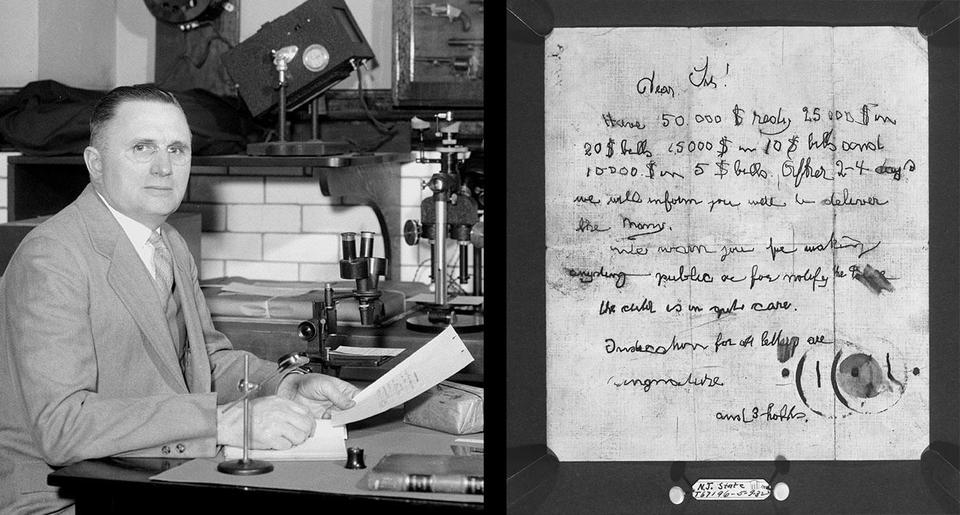 Dear Sir!
Have 50.000 $ redy 25 000 $ in
20 $ bills 15000 $ in 10 $ bills and
10000 $ in 5 $ bills After 2-4 days
we will inform you were to deliver
the Mony.
We warn you for making
anyding public or for notify the
the child is in gute care.
Indication for all letters are
singnature
and 3 holds.
N.J. State